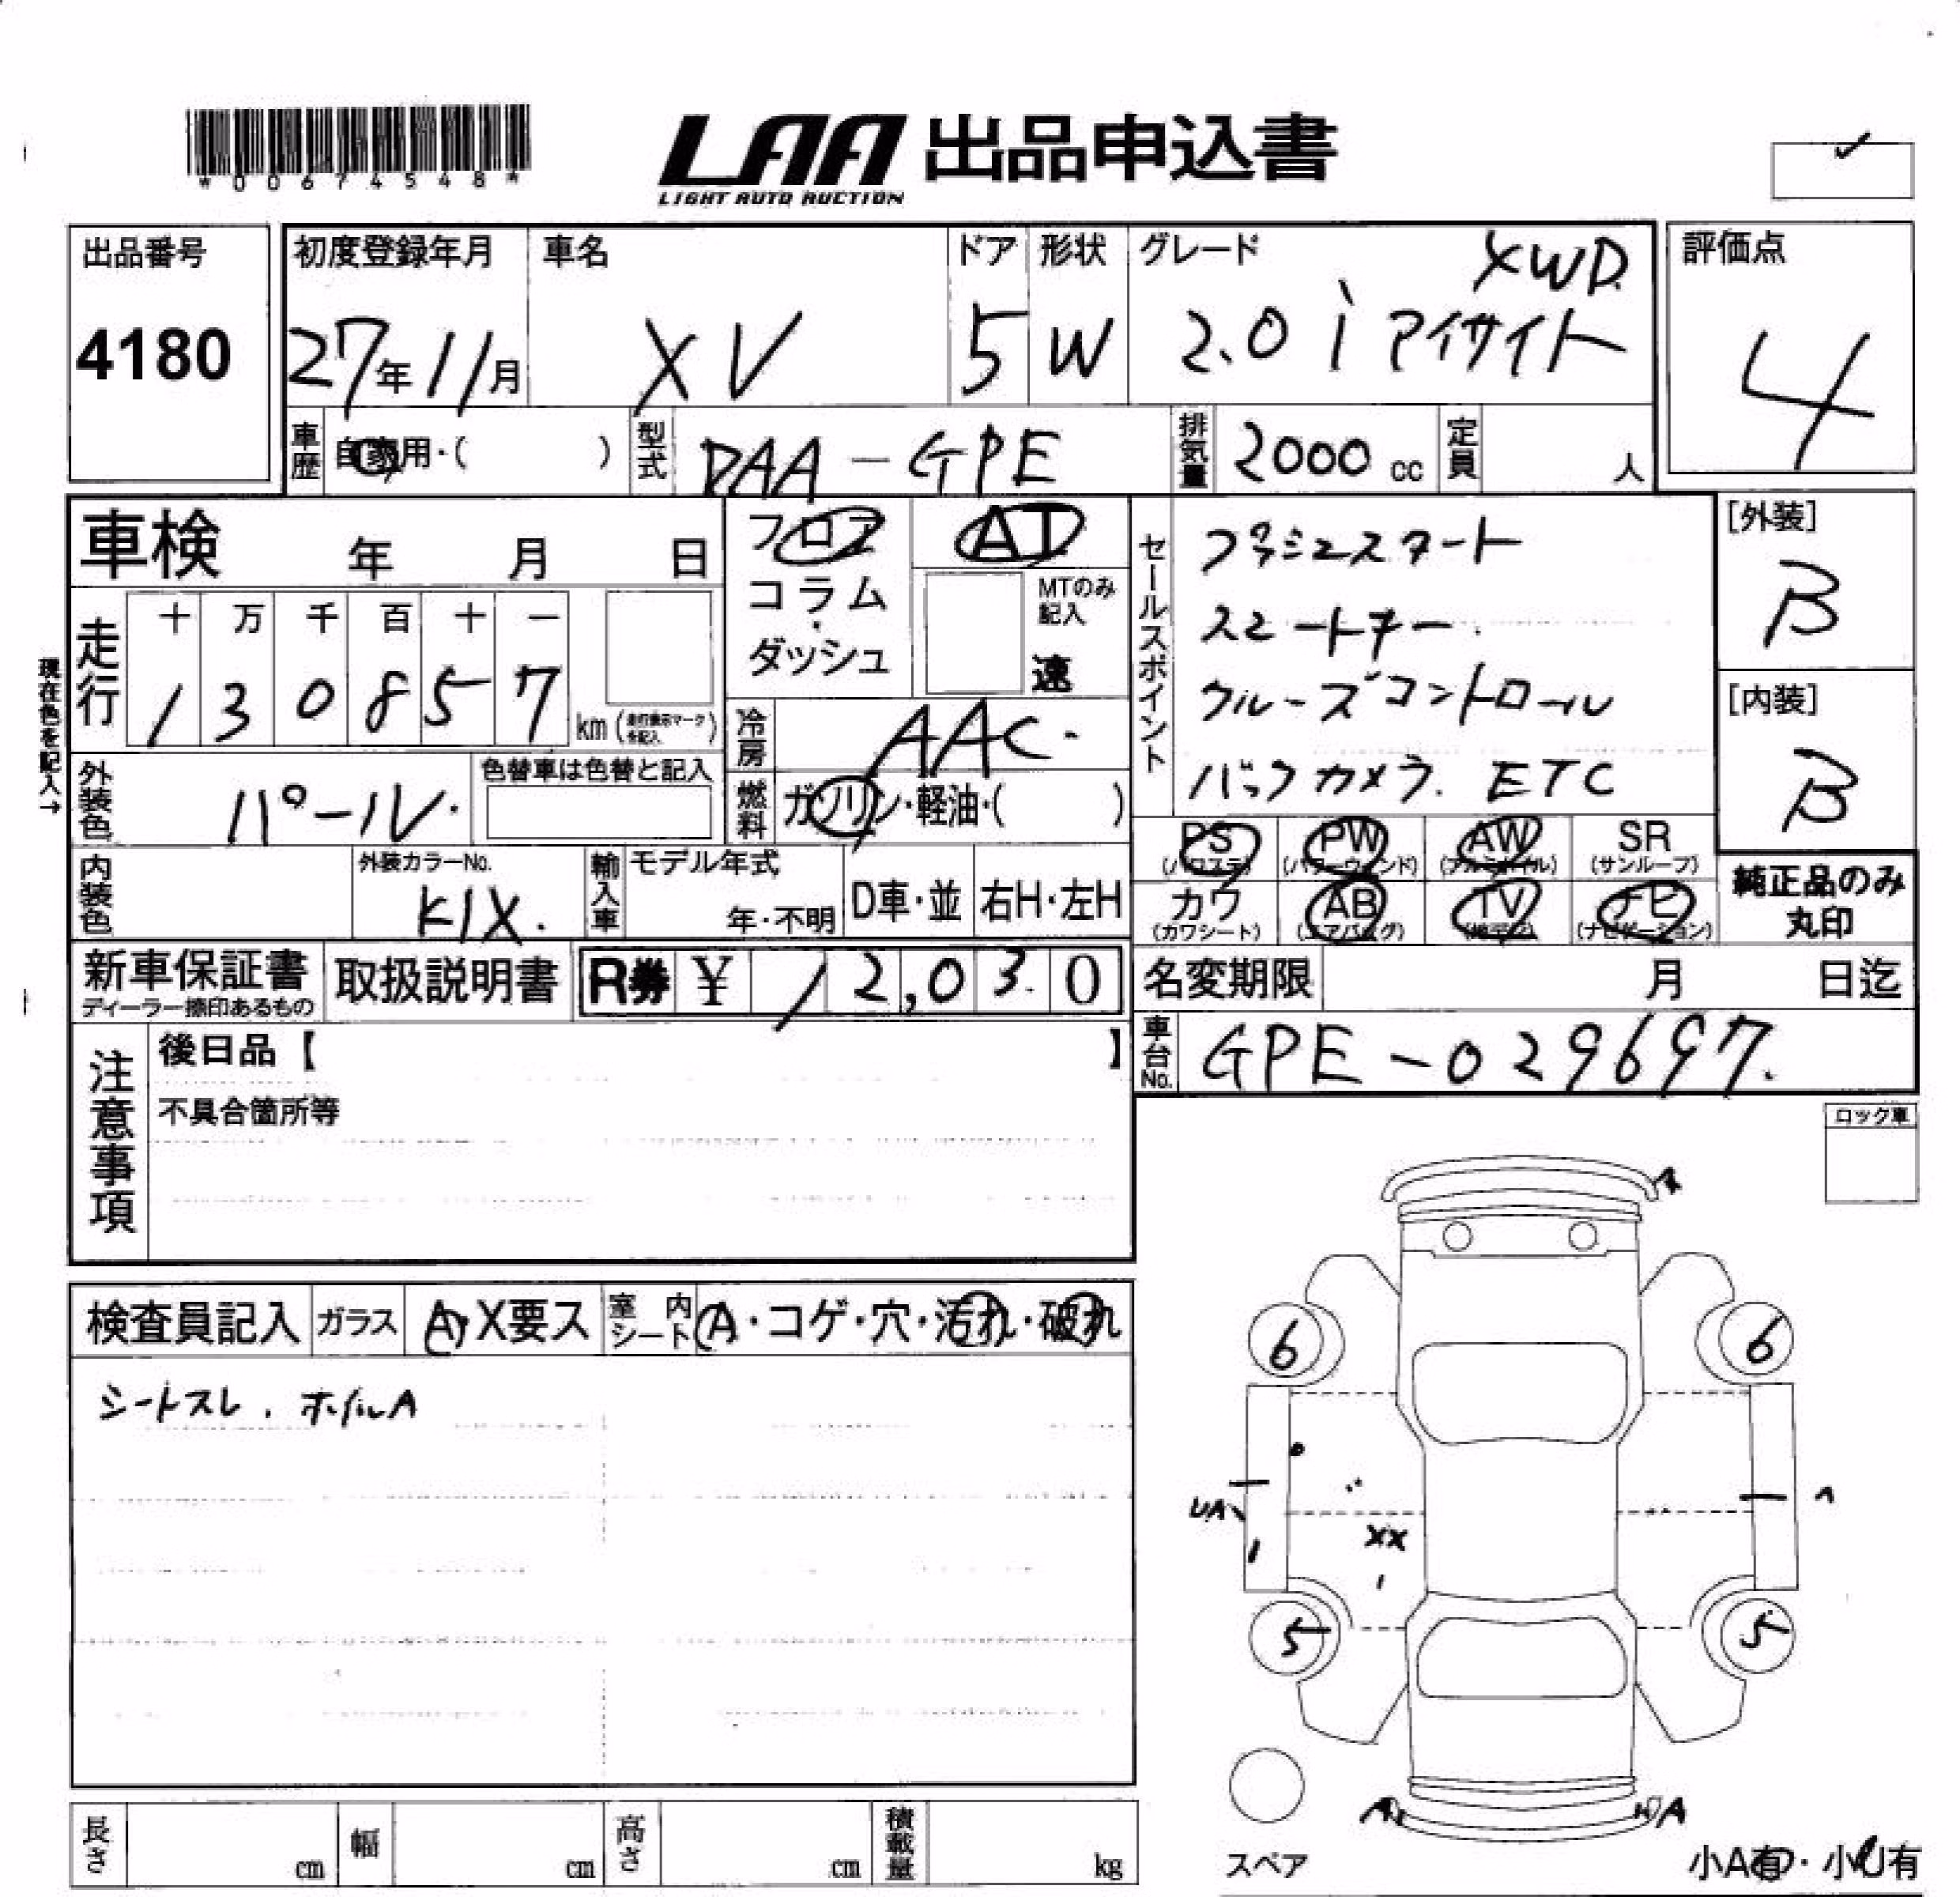 *00674548*
LAA 出品申込書
LIGHT AUTO AUCTION
出品番号
4180
初度登録年月
27年11月
車名
XV
ドア
5
形状
W
グレード
XWD
2.0i アイサイト
評価点
4
車歴 自家用・( )
型式 DAA-GPE
排気量 2000 cc
定員 人
車検 年 月 日
フロア
コラム
・
ダッシュ
AT
MTのみ
記入
速
セールスポイント
プッシュスタート
スマートキー.
クルーズコントロール
バックカメラ. ETC
[外装]
B
[内装]
B
現在色を記入→
走行
十 万 千 百 十 一
1 3 0 8 5 7
km (走行表示マークを記入)
冷房 AAC.
燃料 ガソリン・軽油・( )
外装色 パール.
色替車は色替と記入
内装色
外装カラーNo.
K1X.
輸入車
モデル年式
年・不明
D車・並
右H・左H
PS (パワステ)
PW (パワーウィンド)
AW (アルミホイル)
SR (サンルーフ)
カワ (カワシート)
AB (エアバッグ)
TV (地デジ)
ナビ (ナビゲーション)
純正品のみ
丸印
新車保証書
ディーラー捺印あるもの
取扱説明書
R券 ¥ 12,03.0
名変期限 月 日迄
車台No. GPE-029697.
注意事項
後日品【 】
不具合箇所等
ロック車
検査員記入
ガラス A・X要ス
室内シート A・コゲ・穴・汚れ・破れ
シートスレ. ホイルA
6 6
UA A
XX
5 5
A A
スペア
小A有・小U有
長さ cm
幅 cm
高さ cm
積載量 kg